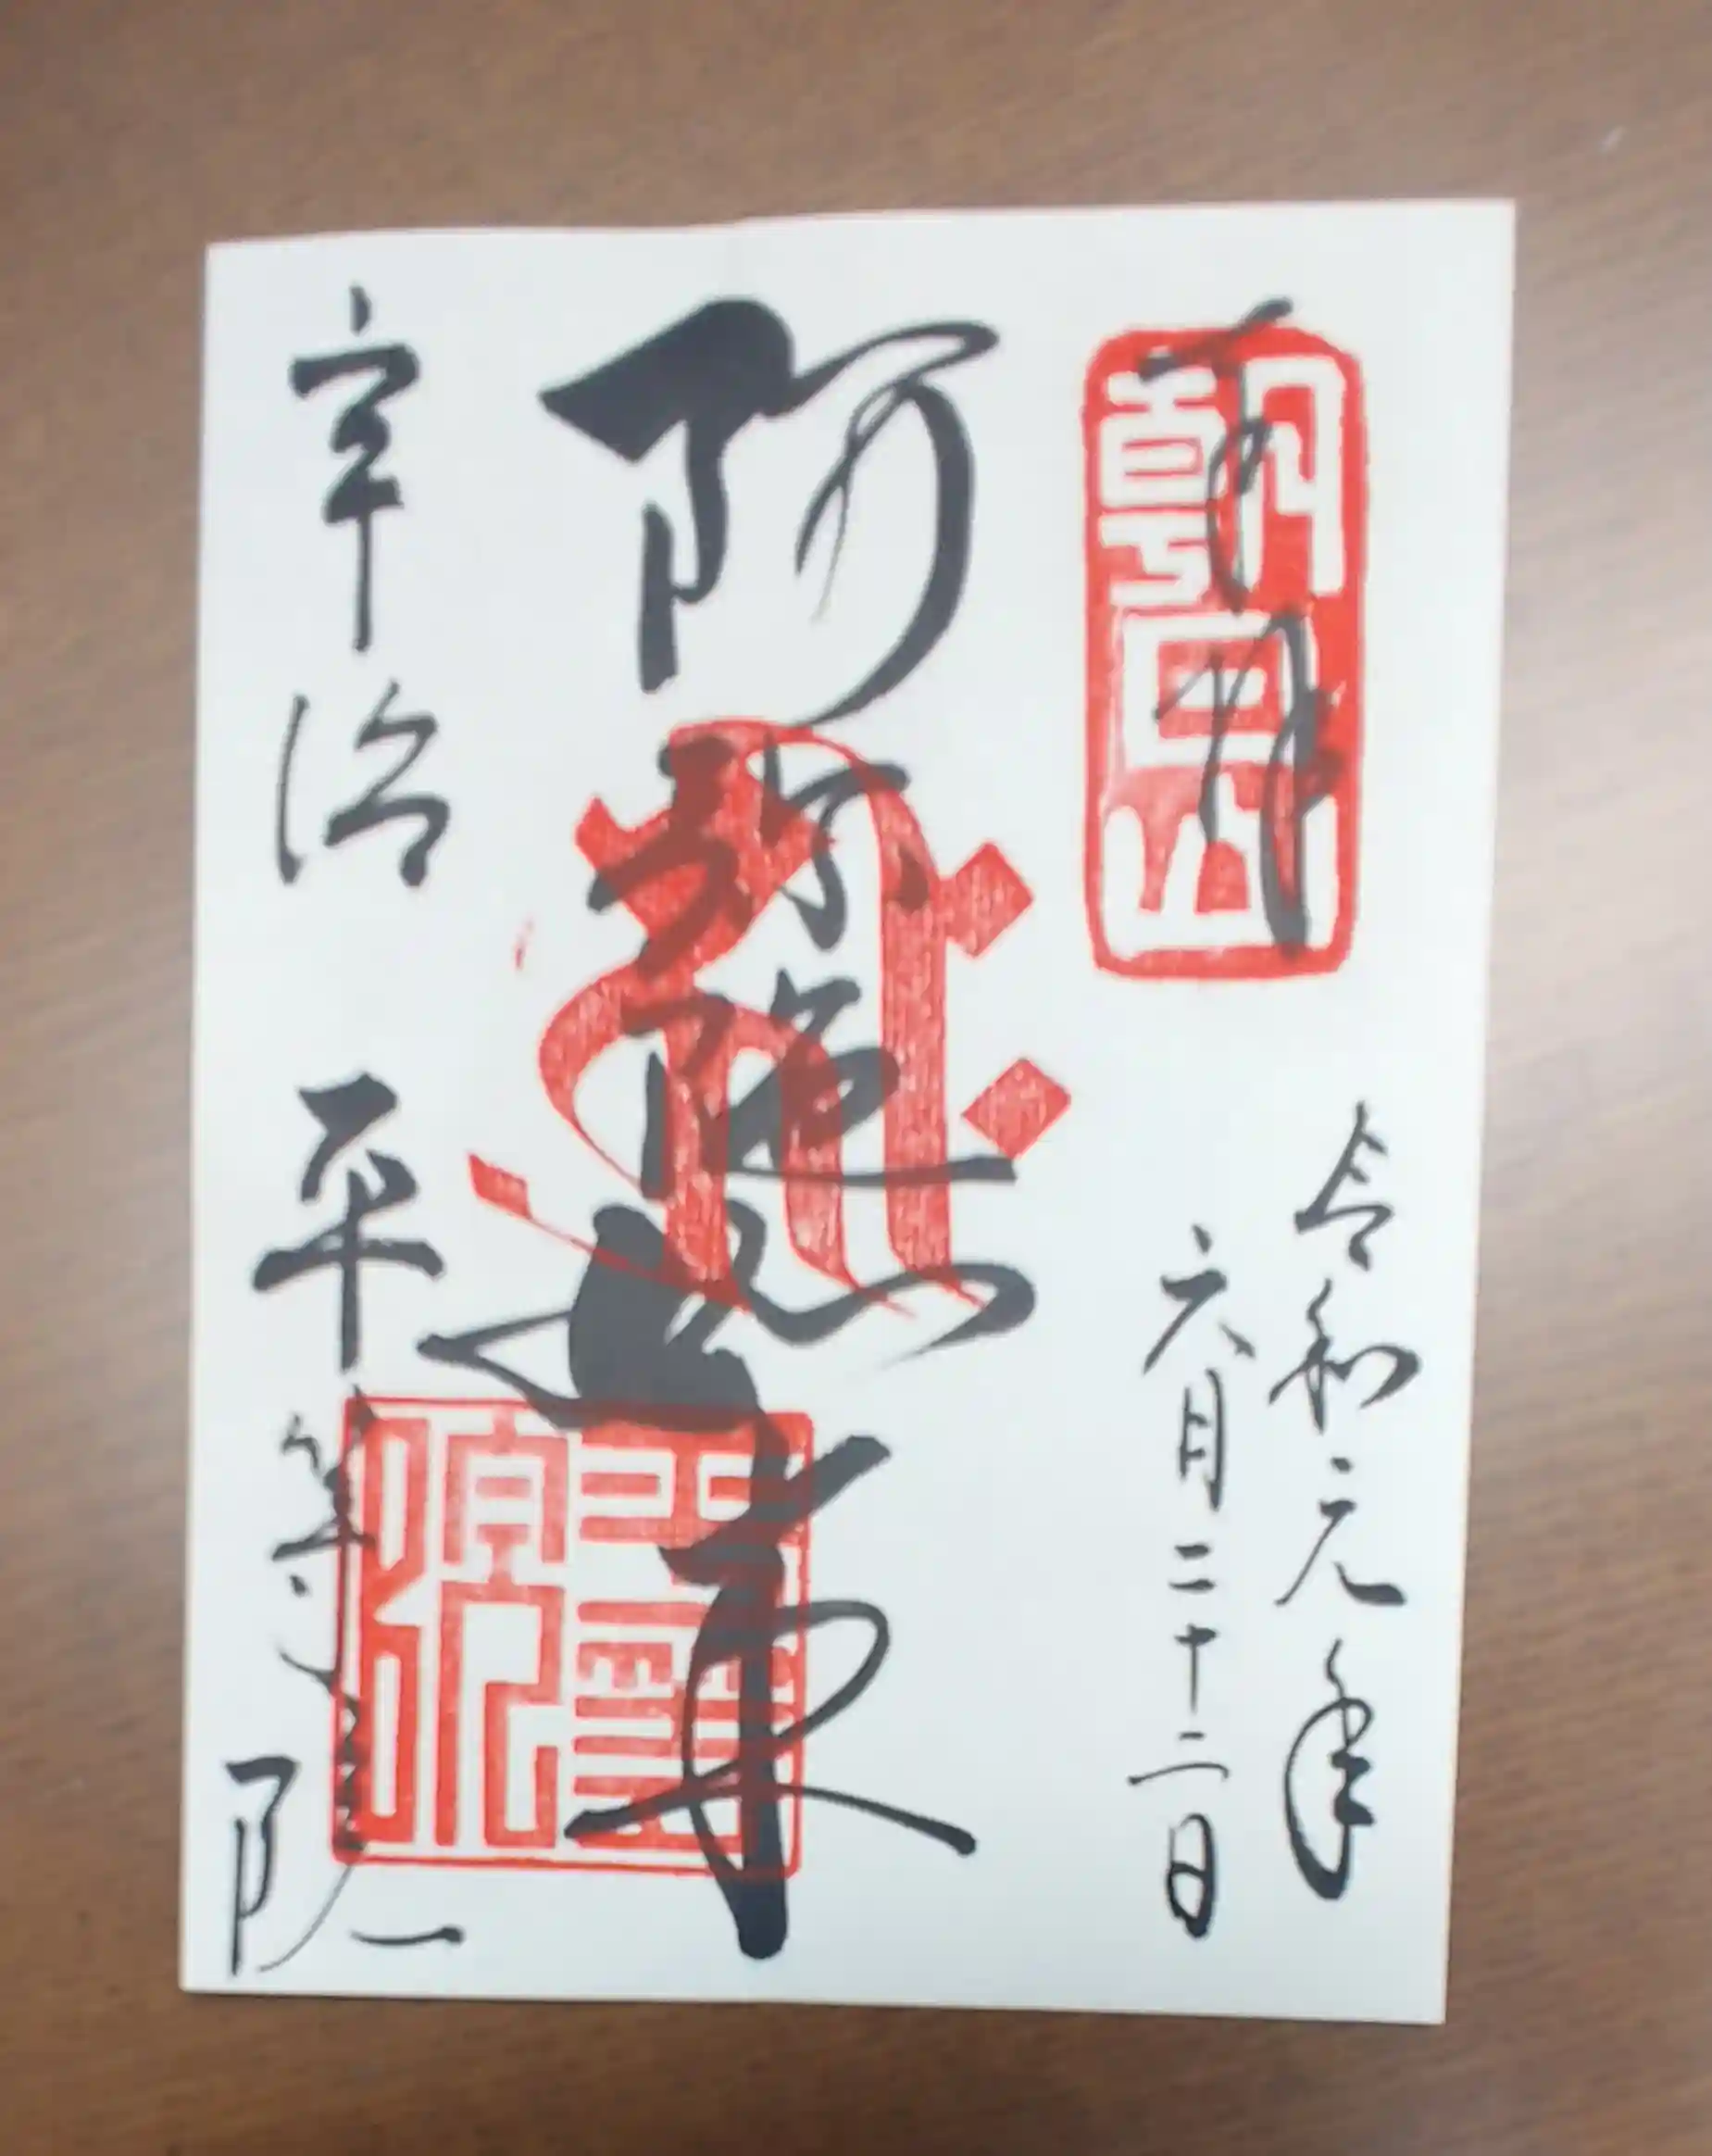 奉拝
朝日山
令和元年
六月二十二日
阿弥陀如来
宇治 平等院
平等院